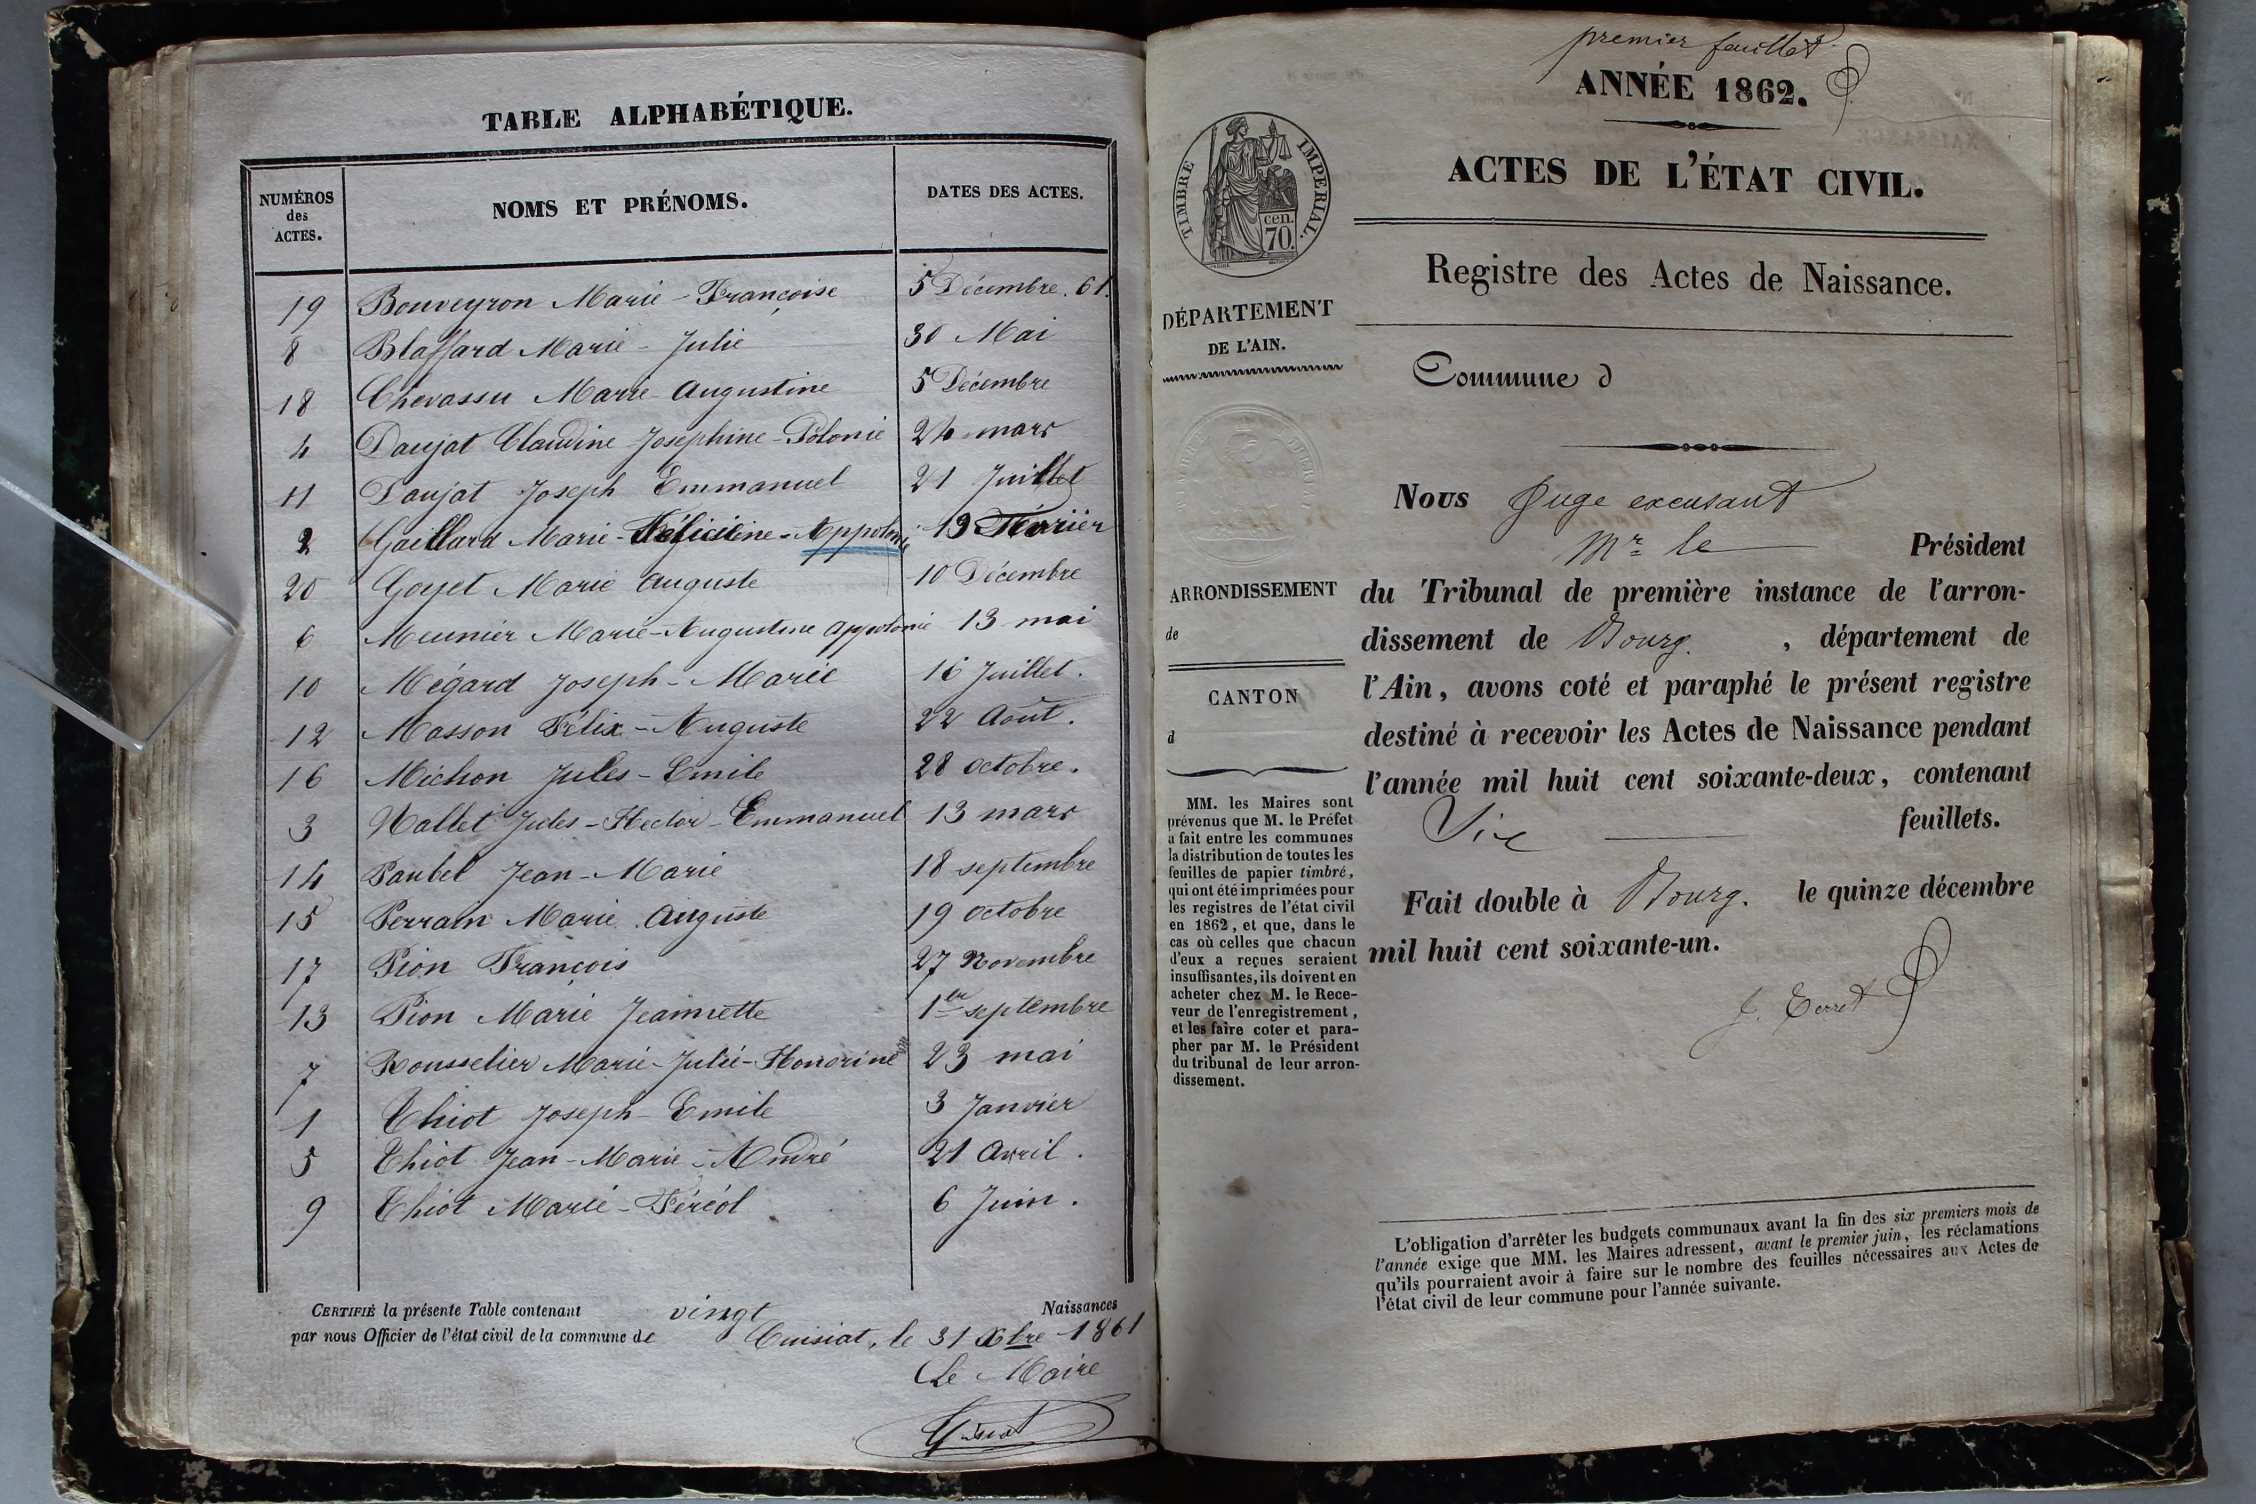 TABLE ALPHABÉTIQUE.
NUMÉROS des ACTES.
NOMS ET PRÉNOMS.
DATES DES ACTES.
19 Bouveyron Marie-Françoise 5 Décembre. 61.
8 Blaffard Marie-Julie 30 Mai
18 Chevassu Marie Augustine 5 Décembre
4 Daujat Claudine Josephine-Polonie 24 mars
11 Daujat Joseph Emmanuel 21 Juillet
2 Gaillard Marie-Féliciene-Appolonie 19 Février
20 Goyet Marie Auguste 10 Décembre
6 Meunier Marie-Augustine appolonie 13 mai
10 Mégard Joseph-Marie 16 Juillet.
12 Masson Félix-Auguste 22 Août.
16 Michon Jules-Emile 28 octobre.
3 Nallet Jules-Hector-Emmanuel 13 mars
14 Paubel Jean-Marie 18 septembre
15 Perrain Marie Auguste 19 octobre
17 Pion François 27 Novembre
13 Pion Marie Jeannette 1er septembre
7 Rousselier Marie-Julie-Honorine 23 mai
1 Thiot Joseph-Emile 3 Janvier
5 Thiot Jean-Marie-André 21 Avril.
9 Thiot Marie-Féréol 6 Juin.
CERTIFIÉ la présente Table contenant vingt Naissances
par nous Officier de l'état civil de la commune de Cuisiat, le 31 Xbre 1861
Le Maire
premier feuillet
ANNÉE 1862.
ACTES DE L'ÉTAT CIVIL.
TIMBRE IMPÉRIAL.
cen.
70.
Registre des Actes de Naissance.
DÉPARTEMENT
DE L'AIN.
Commune d
Nous Juge excusant
Mr le Président
du Tribunal de première instance de l'arron-
dissement de Bourg. , département de
l'Ain, avons coté et paraphé le présent registre
destiné à recevoir les Actes de Naissance pendant
l'année mil huit cent soixante-deux, contenant
Six feuillets.
Fait double à Bourg. le quinze décembre
mil huit cent soixante-un.
ARRONDISSEMENT
de
CANTON
d
MM. les Maires sont
prévenus que M. le Préfet
a fait entre les communes
la distribution de toutes les
feuilles de papier timbré,
qui ont été imprimées pour
les registres de l'état civil
en 1862, et que, dans le
cas où celles que chacun
d'eux a reçues seraient
insuffisantes, ils doivent en
acheter chez M. le Rece-
veur de l'enregistrement,
et les faire coter et para-
pher par M. le Président
du tribunal de leur arron-
dissement.
L'obligation d'arrêter les budgets communaux avant la fin des six premiers mois de
l'année exige que MM. les Maires adressent, avant le premier juin, les réclamations
qu'ils pourraient avoir à faire sur le nombre des feuilles nécessaires aux Actes de
l'état civil de leur commune pour l'année suivante.